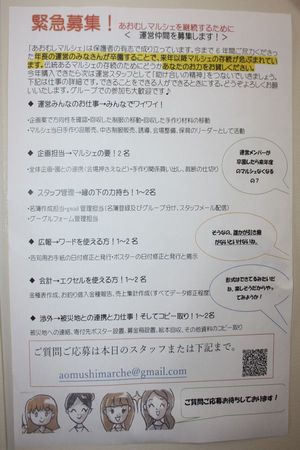 緊急募集！
あおむしマルシェを継続するために
＜ 運営仲間を募集します！＞
「あおむしマルシェ」は保護者の有志で成り立っています。今まで6年間ご尽力くださっ
た年長の運営のみなさんが卒園することで、来年以降マルシェの存続が危ぶまれてい
ます。伝統あるマルシェの存続のためにどうかあなたのお力をお貸しください。
今年購入できたら次は運営スタッフとして「助け合いの精神」をつないでいきましょう。
下記は仕事の詳細です。できることをできる人ができるときにする。どうぞよろしくお願
いいたします。グループでの参加も大歓迎です♪
◆ 運営みんなのお仕事→みんなでワイワイ！
・企画案で方向性を確認・回収した制服の移動・回収した手作り材料の移動
・マルシェ当日手作り品販売、中古制服販売、誘導、会場整備、保育のリーダーとして活動
◆ 企画担当→マルシェの要！2名
・全体企画・園との連携（会場押さえなど）・手作り関係買い出し、裁断の仕切り
◆ スタッフ管理→縁の下の力持ち！1～2名
・名簿作成担当・gmail管理担当（名簿登録及びグループ分け、スタッフメール配信）
・グーグルフォーム管理担当
◆ 広報→ワードを使える方！1～2名
・告知用お手紙の日付修正と発行・ポスターの日付の修正と発行と掲示
◆ 会計→エクセルを使える方！1～2名
・金種表作成、お釣り借入金種報告、売上集計作成（すべてデータあり、日付など修正程度）
◆ 渉外→被災地との連携と力仕事！そしてコピー取り！1～2名
・被災地への連絡、寄付先ポスター設置、募金箱設置、絵本回収、その他資料のコピー取り
運営メンバーが
卒園したら来年度
のマルシェなくなる
の？
そうなの、誰かが引き継
がないといけないね。
お式はできてるみたいだ
ね。楽しそうだからやっ
てみようか！
ご質問ご応募は本日のスタッフまたは下記まで。
aomushimarche@gmail.com
ご質問ご応募お待ちしております！